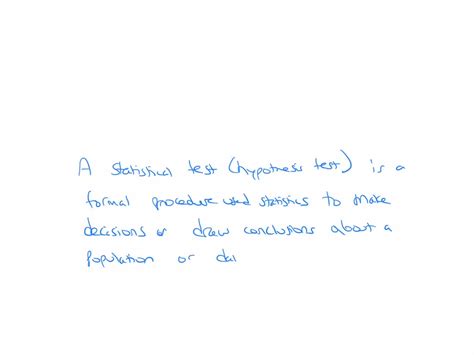 A statistical test (hypothesis test) is a
formal procedure used statistics to make
decisions or draw conclusions about a
population or da